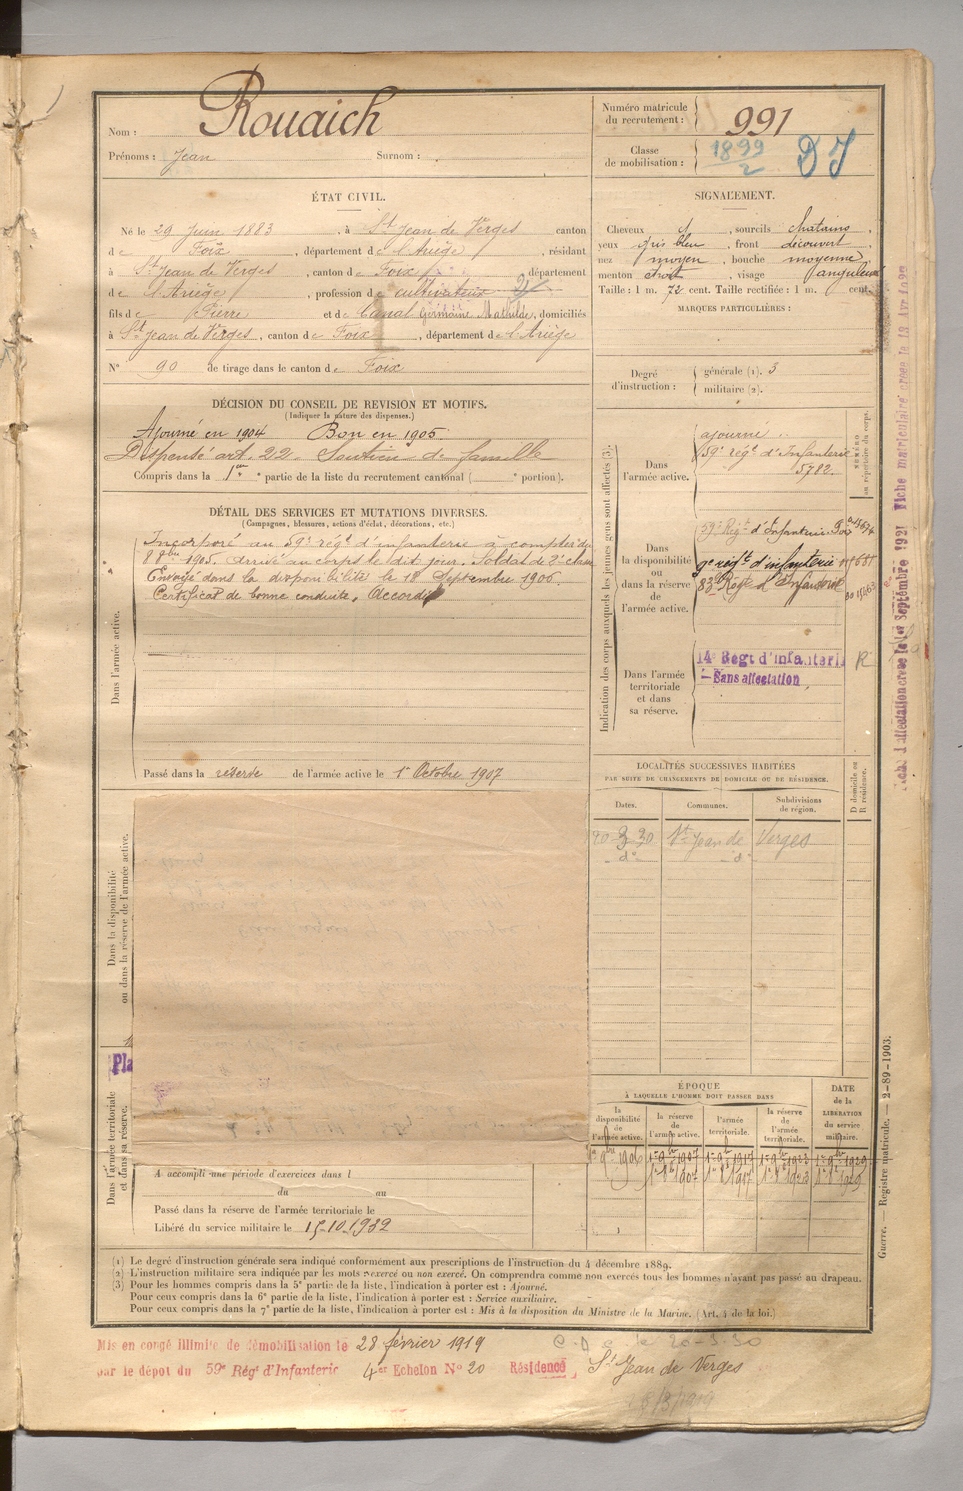 Nom : Rouaich
Prénoms : Jean Surnom : .
Numéro matricule du recrutement : 991
Classe de mobilisation : 1899/2
ÉTAT CIVIL.
Né le 29 Juin 1883, à St Jean de Verges canton
de Foix, département de l'Ariège, résidant
à St Jean de Verges, canton de Foix, département
de l'Ariège, profession de cultivateur
fils de Pierre et de Canal Germaine Mathilde, domiciliés
à St Jean de Verges, canton de Foix, département de l'Ariège
N° 90 de tirage dans le canton de Foix
SIGNALEMENT.
Cheveux, sourcils chatains,
yeux gris bleu, front découvert
nez moyen, bouche moyenne,
menton, visage anguleux
Taille : 1 m. 72 cent. Taille rectifiée : 1 m. cent.
MARQUES PARTICULIÈRES :
Degré d'instruction : générale (1). 3
militaire (2).
DÉCISION DU CONSEIL DE REVISION ET MOTIFS.
(Indiquer la nature des dispenses.)
Ajourné en 1904 Bon en 1905.
Dispensé art. 22. Soutien de famille
Compris dans la 1ere partie de la liste du recrutement cantonal ( portion).
DÉTAIL DES SERVICES ET MUTATIONS DIVERSES.
(Campagnes, blessures, actions d'éclat, décorations, etc.)
Incorporé au 59e régt d'infanterie à compter du
8 8bre 1905. Arrivé au corps le dit jour. Soldat de 2e
Envoyé dans la disponibilité le 18 Septembre 1906.
Certificat de bonne conduite, Accordé
Dans l'armée active.
Passé dans la réserve de l'armée active le 1er Octobre 1907
Indication des corps auxquels les jeunes gens sont affectés (3).
NUMÉRO au répertoire du corps.
Dans l'armée active.
ajourné
59e régt d'Infanterie
5782.
Dans la disponibilité ou dans la réserve de l'armée active.
59e Régt d'Infanterie
9e régt d'infanterie
83e Régt d'Infanterie
Dans l'armée territoriale et dans sa réserve.
14e Régt d'infanterie R
Sans affectation
LOCALITÉS SUCCESSIVES HABITÉES
PAR SUITE DE CHANGEMENTS DE DOMICILE OU DE RÉSIDENCE.
D domicile ou R résidence.
Dates. Communes. Subdivisions de région.
20 3 30 St Jean de Verges
d° d°
Dans la disponibilité ou dans la réserve de l'armée active.
Pla
Dans l'armée territoriale et dans sa réserve.
ÉPOQUE
À LAQUELLE L'HOMME DOIT PASSER DANS
DATE de la LIBÉRATION du service militaire.
la disponibilité de l'armée active.
la réserve de l'armée active.
l'armée territoriale.
la réserve de l'armée territoriale.
A accompli une période d'exercices dans l
du au
Passé dans la réserve de l'armée territoriale le
Libéré du service militaire le 15-10-1932
(1) Le degré d'instruction générale sera indiqué conformément aux prescriptions de l'instruction du 4 décembre 1889.
(2) L'instruction militaire sera indiquée par les mots exercé ou non exercé. On comprendra comme non exercés tous les hommes n'ayant pas passé au drapeau.
(3) Pour les hommes compris dans la 5e partie de la liste, l'indication à porter est : Ajourné.
Pour ceux compris dans la 6e partie de la liste, l'indication à porter est : Service auxiliaire.
Pour ceux compris dans la 7e partie de la liste, l'indication à porter est : Mis à la disposition du Ministre de la Marine. (Art. 4 de la loi.)
Guerre. — Registre matricule. — 2-89-1903.
Mis en congé illimité de démobilisation le 28 février 1919
par le dépot du 59e Rég d'Infanterie 4er Echelon N° 20 Résidence St Jean de Verges
le 20-3-30